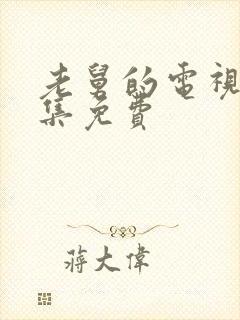 老舅的電視
集免費
蔣大偉